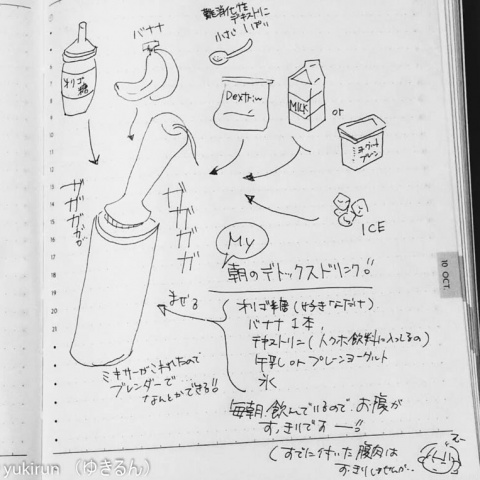 難消化性
デキストリン
小さじ1ぱい
バナナ
オリゴ糖
Dextrin
MILK
or
ヨーグルト
プレーン
ICE
ガガガガガ
ガガガガ
My
朝のデトックスドリンク!!
まぜる
オリゴ糖(好きなだけ)
バナナ1本,
デキストリン(トクホ飲料に入ってるの)
牛乳 or プレーンヨーグルト
氷
ミキサーがこわれたので
ブレンダーで
なんとかできる!!
毎朝飲んでいるので、お腹が
すっきりですー!!
(すでに付いた腹肉は
すっきりしませんが..
10 OCT.
6
7
8
9
10
11
12
13
14
15
16
17
18
19
20
21
yukirun (ゆきるん)